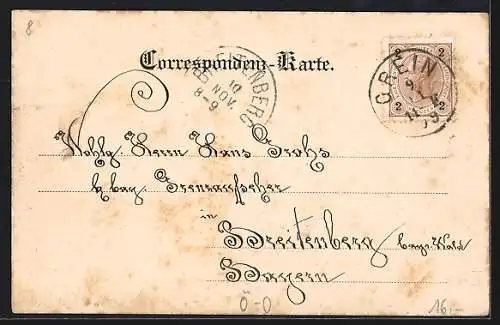 8
Correspondenz-Karte.
2 2
2 2
GREIN
9
11
BREITENBERG
10
NOV.
8-9
Wohlg. Herrn Hans
k. bay. Grenzaufseher
in
Breitenberg bayr. Wald
Bayern
Ö-O
16.-